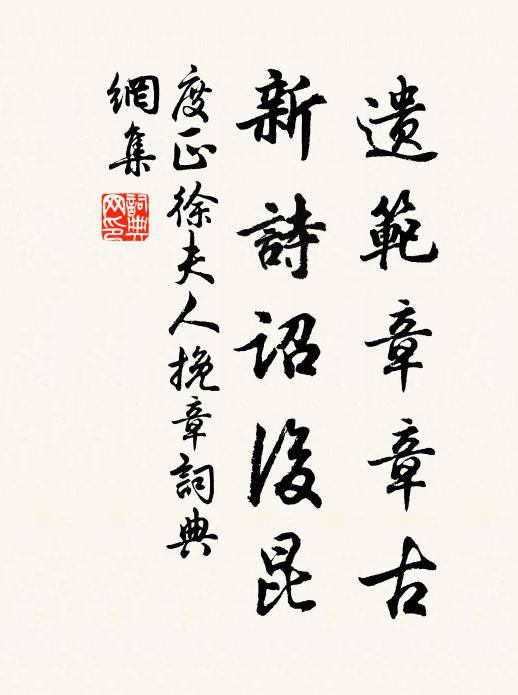 遺範章章古
新詩詔後昆
度正徐夫人挽章詞典
網集
詞典網印